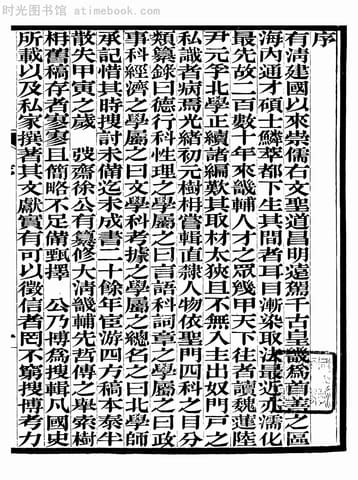 时光图书馆 www.cltime.com
序
有清建國以來崇儒右文聖道昌明遠駕千古皇畿爲首善之區
海內通才碩士鱗萃都下生其間者耳目漸染取法最近亦濡化
最先故二百數十年來畿輔人才之眾幾甲天下往者讀魏蓮陸
尹元孚北學正續諸編歎其取材太狹且不無入主出奴門戶之
私識者病焉光緒初元樹枏嘗輯直隸人物依聖門四科之目分
類纂錄曰德行科性理之學屬之曰言語科詞章之學屬之曰政
事科經濟之學屬之曰文學科考據之學屬之總名之曰北學師
承記惜其時搜討未備迄未成書二十餘年宦游四方稿本泰半
散失甲寅之歲 弢齋徐公有纂修大清畿輔先哲傳之舉索樹
枏舊稿存者寥寥且簡略不足備甄擇 公乃博爲搜輯凡國史
所載以及私家撰著其文獻實有可以徵信者罔不窮搜博考力